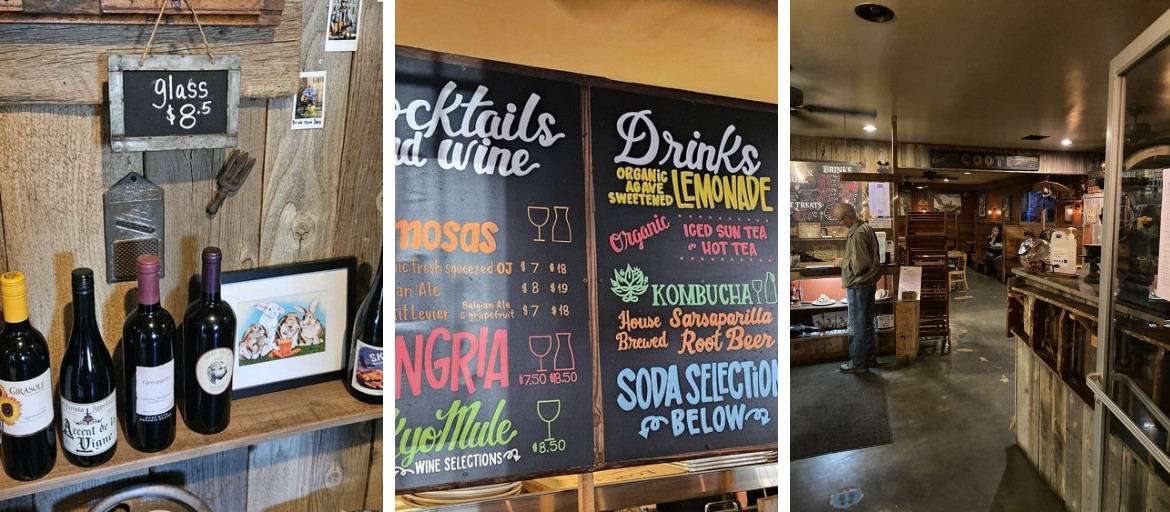 glass
$8.5
GIRASOLE
Accent de la
Vigne
ocktails
nd wine
mosas
nic fresh squeezed OJ $7 $18
an Ale $8 $19
Belgian Ale
& grapefruit
it Levier $7 $18
NGRIA
$7.50 $18.50
kyo Mule
$8.50
WINE SELECTIONS
Drinks
ORGANIC
AGAVE
SWEETENED
LEMONADE
Organic
ICED SUN TEA
HOT TEA
KOMBUCHA
House
Brewed
Sarsaparilla
Root Beer
SODA SELECTION
BELOW
DRINKS
T TREATS
COOTE